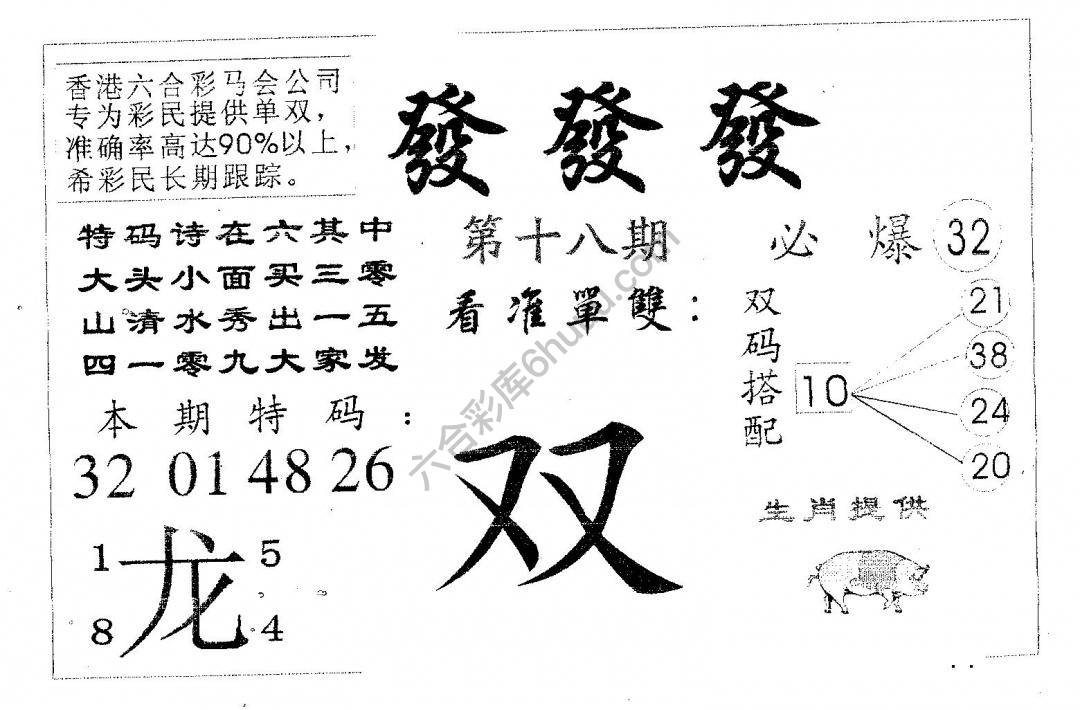 香港六合彩马会公司
专为彩民提供单双，
准确率高达90%以上，
希彩民长期跟踪。
發發發
特码诗在六其中
大头小面买三零
山清水秀出一五
四一零九大家发
第十八期
看准單雙：
必爆32
双码搭配
10
21
38
24
20
本期特码：
32 01 48 26
双
生肖提供
1 5
龙
8 4
六合彩库6huku.com